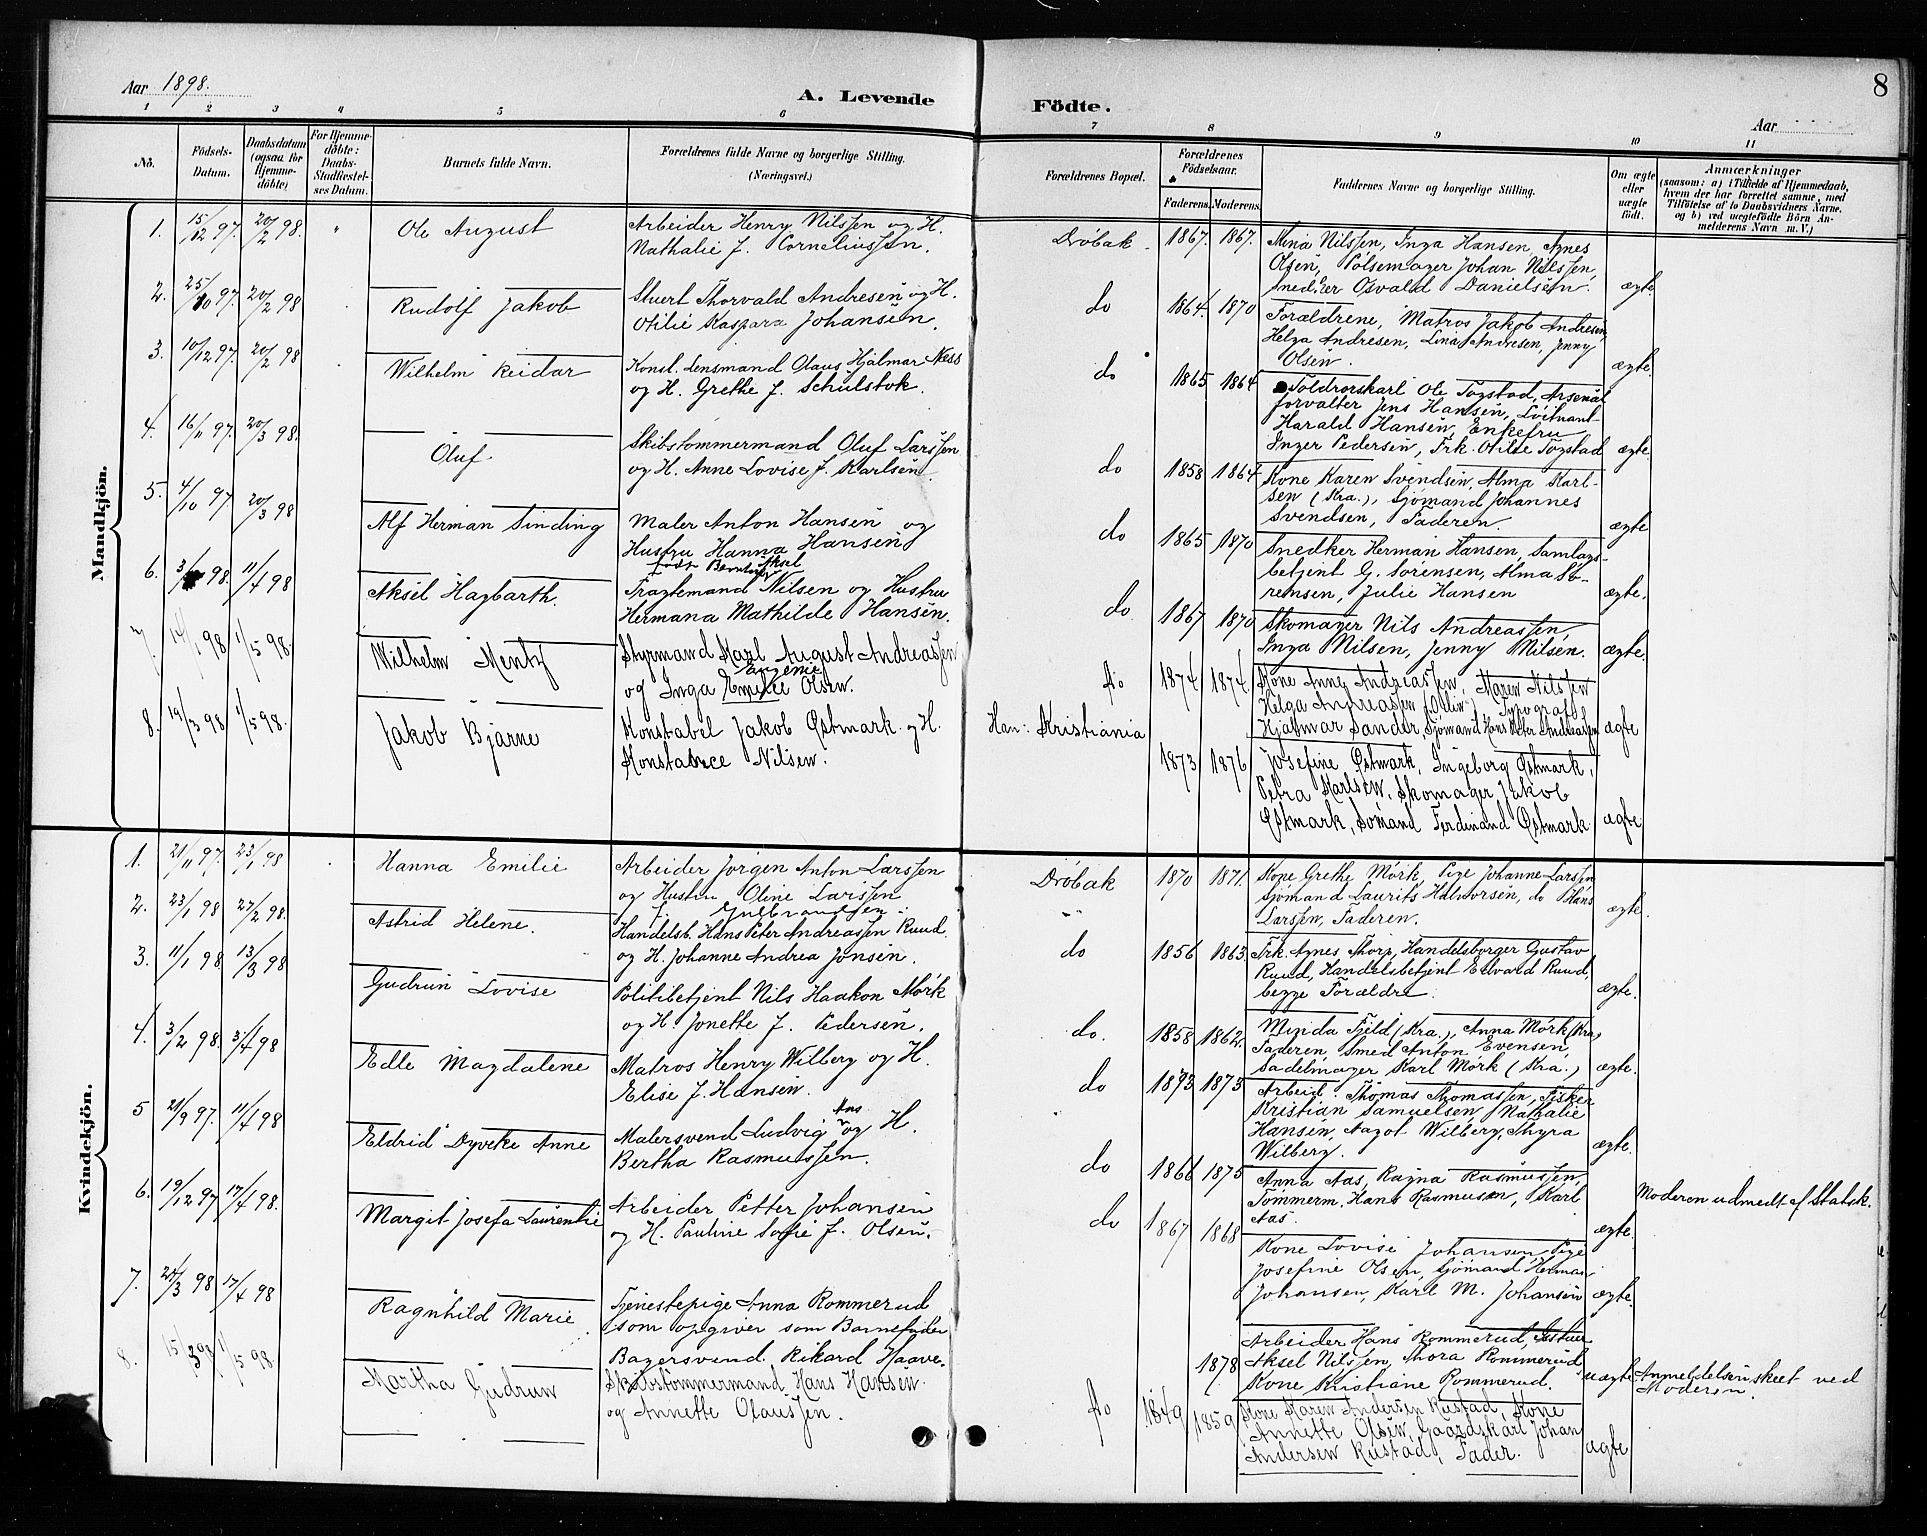 Aar 1898.
A. Levende
Födte.
8
Aar
1 2 3 4 5 6 7 8 9 10 11
No.
Födsels-Datum.
Daabsdatum (ogsaa for Hjemme-döbte)
For Hjemme-döbte: Daabs-Stadfestel-ses Datum.
Barnets fulde Navn.
Forældrenes fulde Navne og borgerlige Stilling.
(Næringsvei.)
Forældrenes Bopæl.
Forældrenes Födselsaar.
Faderens. Moderens.
Faddernes Navne og borgerlige Stilling.
Om ægte eller uægte födt.
Anmærkninger
(saasom: a) i Tilfælde af Hjemmedaab,
hvem der har forrettet samme, med
Tilföielse af to Daabsvidners Navne.
og b) ved uægtefödte Börn An-
melderens Navn m. V.)
Mandkjön.
1. 15/12 97. 20/2 98. " Ole August
Arbeider Henry Nilssen og H.
Nathalie f. Corneliussen.
Dröbak. 1867. 1867.
Mina Nilssen, Inga Hansen, Agnes
Olsen, Pölsemager Johan Nilssen,
Snedker Osvald Danielsen. ægte
2. 25/10 97. 20/2 98 Rudolf Jakob
Stuert Thorvald Andresen og H.
Otilie Kaspara Johansen.
do 1864. 1870
Forældrene, Matros Jakob Andresen,
Helga Andresen, Lina Andresen, Jenny
Olsen. ægte.
3. 10/12 97. 20/2 98 Wilhelm Reidar
Konst. Lensmand Olaus Hjalmar Ness
og H. Grethe f. Schulstok.
do 1865 1864
Toldrorskarl Ole Togstad, Arsenal
forvalter Jens Hansen, Löitnant
Harald Hansen, Enkefru
Inger Pedersen, Frk. Otilde Togstad ægte.
4. 16/11 97. 20/3 98. Oluf
Skibstömmermand Oluf Larssen
og H. Anne Lovise f. Karlsen.
do 1858 1864
Kone Karen Svendsen, Alma Karl-
sen (Kra.), Sjömand Johannes
Svendsen, Faderen. ægte
5. 4/10 97. 20/3 98 Alf Herman Sinding
Maler Anton Hansen og
Hustru Hanna Hansen
do 1865 1870
Snedker Herman Hansen, Samlags-
betjent G. Sörensen, Alma Sö-
rensen, Julie Hansen ægte.
6. 98. 11/4 98 Aksel Hagbarth.
Aksel
Fragtemand Nilsen og Hustru
Hermana Mathilde Hansen.
do 1867 1870
Skomager Nils Andreassen,
Inga Nilsen, Jenny Nilsen. ægte.
7. 14/1 98 1/5 98 Wilhelm Mentz
Styrmand Karl August Andreassen
og Inga Emilie Olsen.
do 1874 1874.
Kone Anne Andreassen, Maren Nilssen
Helga Andreassen (Olsen) Typograf
Hjalmar Sander, Sjömand Hans Peter Andreassen ægte
8. 19/3 98 1/5 98. Jakob Bjarne
Konstabel Jakob Østmark og H.
Konstance Nilsen.
Han: Kristiania 1873 1876
Josefine Østmark, Ingeborg Østmark,
Petra Karlsen, Skomager Jakob
Østmark, Sömand Ferdinand Østmark ægte
Kvindekjön.
1. 21/11 97. 23/1 98 Hanna Emilie
Arbeider Jörgen Anton Larssen
og Hustru Oline Larssen
f. Gulbrandsen.
Dröbak 1870 1871.
Kone Grethe Mörk, Pige Johanne Larssen
Sjömand Laurits Halvorsen, do Hans
Larssen, Faderen. ægte.
2. 23/1 98 27/2 98. Astrid Helene.
Handelsb. Hans Peter Andreassen Ruud
og H. Johanne Andrea Jonsen.
do 1856 1863.
Frk. Agnes Thorp, Handelsborger Gustav
Ruud, Handelsbetjent Edvard Ruud,
begge Forældre. ægte.
3. 11/1 98 13/3 98 Gudrun Lovise
Politibetjent Nils Haakon Mörk
og H. Jonette f. Pedersen.
do. 1858 1862.
Minda Fjeld (Kra.), Anna Mörk (Kra)
Faderen, Smed Anton Evensen,
Sadelmager Karl Mörk (Kra.) ægte.
4. 3/2 98. 3/4 98 Edle Magdalene
Matros Henry Wilberg og H.
Elise f. Hansen.
do 1873 1873
Arbeid. Thomas Thomassen, Fisker
Kristian Samuelsen, Nathalie
Hansen, Aagot Wilberg, Thyra
Wilberg. ægte.
5 21/9 97. 11/4 98 Eldrid Dyveke Anne
Malersvend Ludvig Aas og H.
Bertha Rasmussen.
do 1866 1875
Anna Aas, Ragna Rasmussen,
Tömmerm. Hans Rasmussen, Karl
Aas. ægte.
Moderen udmedt af Statsk.
6. 19/12 97 17/4 98. Margit Josefa Laurentie
Arbeider Petter Johansen
og H. Pauline Sofie f. Olsen.
do 1867 1868
Kone Lovise Johansen, Pige
Josefine Olsen, Sjömand Herman
Johansen, Karl M. Johansen ægte.
7. 24/3 98 17/4 98 Ragnhild Marie
Tjenestepige Anna Rommerud
som opgiver som Barnefader
Bagersvend Rikard Haave.
1878
Arbeider Hans Rommerud,
Aksel Nilssen, Thora Rommerud
Kone Kristiane Rommerud. uægte
Anmeldelsen skeet ved
Moderen.
8. 15/3 98 1/5 98 Martha Gudrun
Skibstömmermand Hans Hansen
og Annette Olaussen.
do 1849 1859
Kone Maren Andersen Rustad, Kone
Annette Olsen, Gaardskarl Johan
Andersen Rustad, Fader. ægte